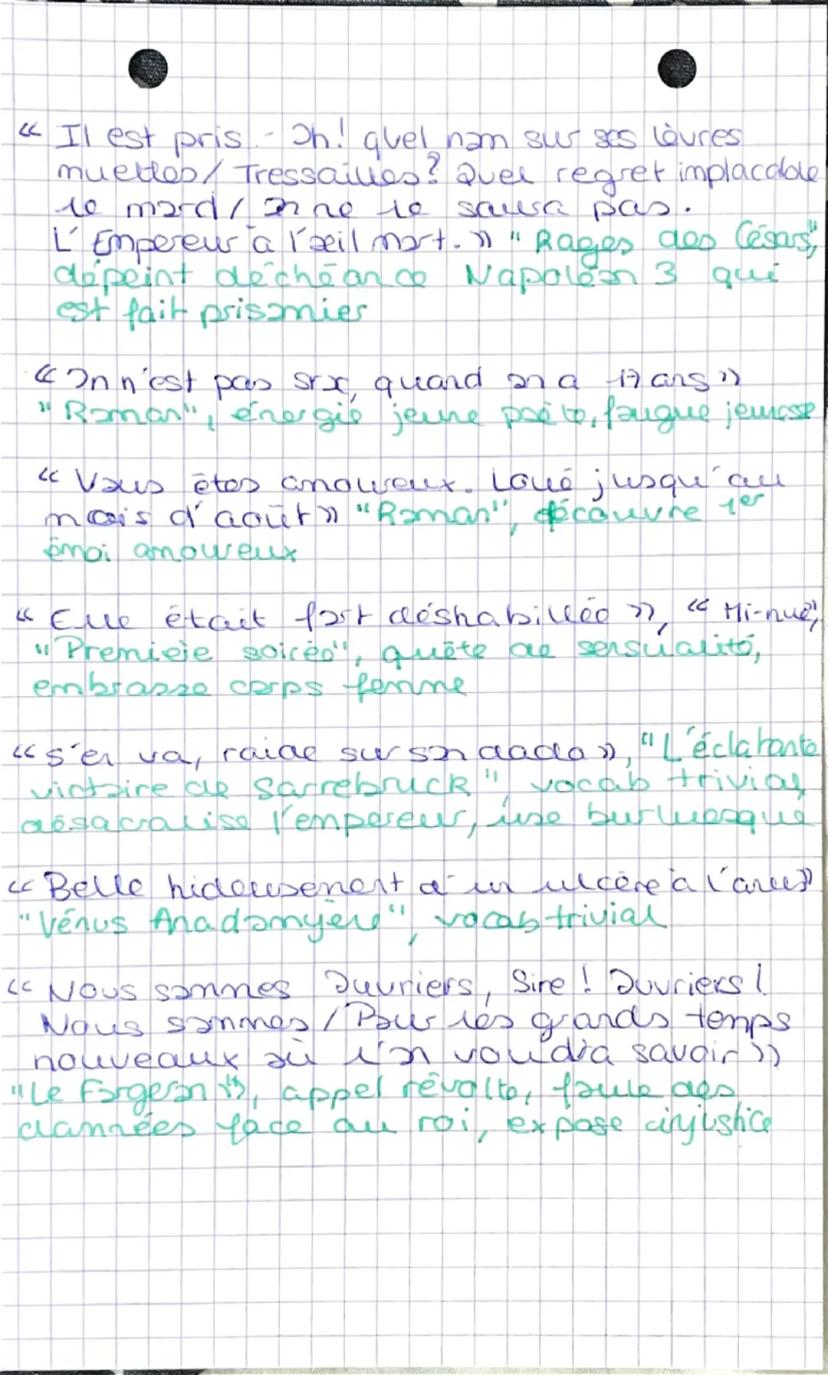 « Il est pris. - Oh ! quel nom sur ses lèvres
muettes / Tressaille ? Quel regret implacable
le mord / On ne le saura pas.
L'Empereur a l'œil mort. » "Rages des Césars",
dépeint déchéance Napoléon 3 qui
est fait prisonnier
« On n'est pas srx, quand on a 17 ans »
"Roman", énergie jeune poète, fougue jeunesse
« Vous êtes amoureux. Loué jusqu'au
mois d'août » "Roman", découvre 1er
émoi amoureux
« Elle était fort déshabillée », « Mi-nue »,
"Première soirée", quête de sensualité,
embrasse corps femme
« s'en va, raide sur son dada », "L'éclatante
victoire de Sarrebruck", vocab trivial,
désacralise l'empereur, use burlesque
« Belle hideusement d'un ulcère à l'anus »
"Vénus Anadomyène", vocab trivial
« Nous sommes Ouvriers, Sire ! Ouvriers !
Nous sommes / Pour les grands temps
nouveaux où l'on voudra savoir »
"Le Forgeron", appel révolte, foule des
damnées face au roi, expose injustice